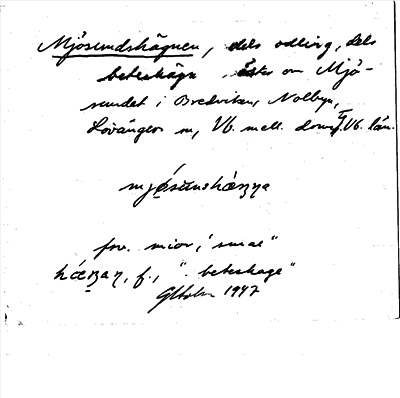 Mjösundshägnen, dels odling, dels
beteshägn, öster om Mjö-
sundet i Bredviken, Nolbyn,
Lövångers sn, Vb. mell. domsg. Vb. län.
fsv. mior, "smal"
f., "beteshage"
GHolm 1947